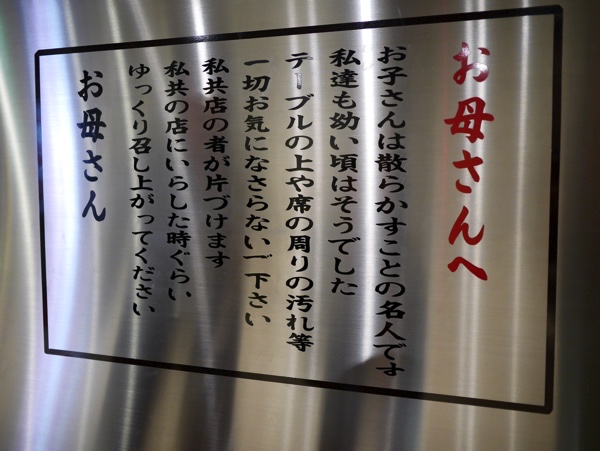 お母さんへ
お子さんは散らかすことの名人です
私達も幼い頃はそうでした
テーブルの上や席の周りの汚れ等
一切お気になさらないで下さい
私共店の者が片づけます
私共の店にいらした時ぐらい
ゆっくり召し上がってください
お母さん